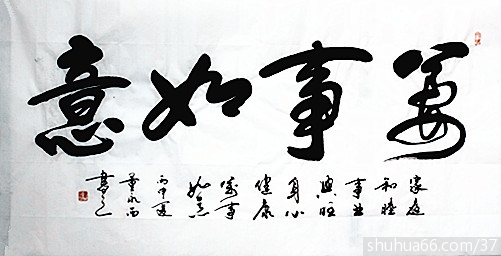 萬事如意
家庭
和睦
事業
興旺
身心
健康
萬事
如意
丙申夏
書之
shuhua66.com/37